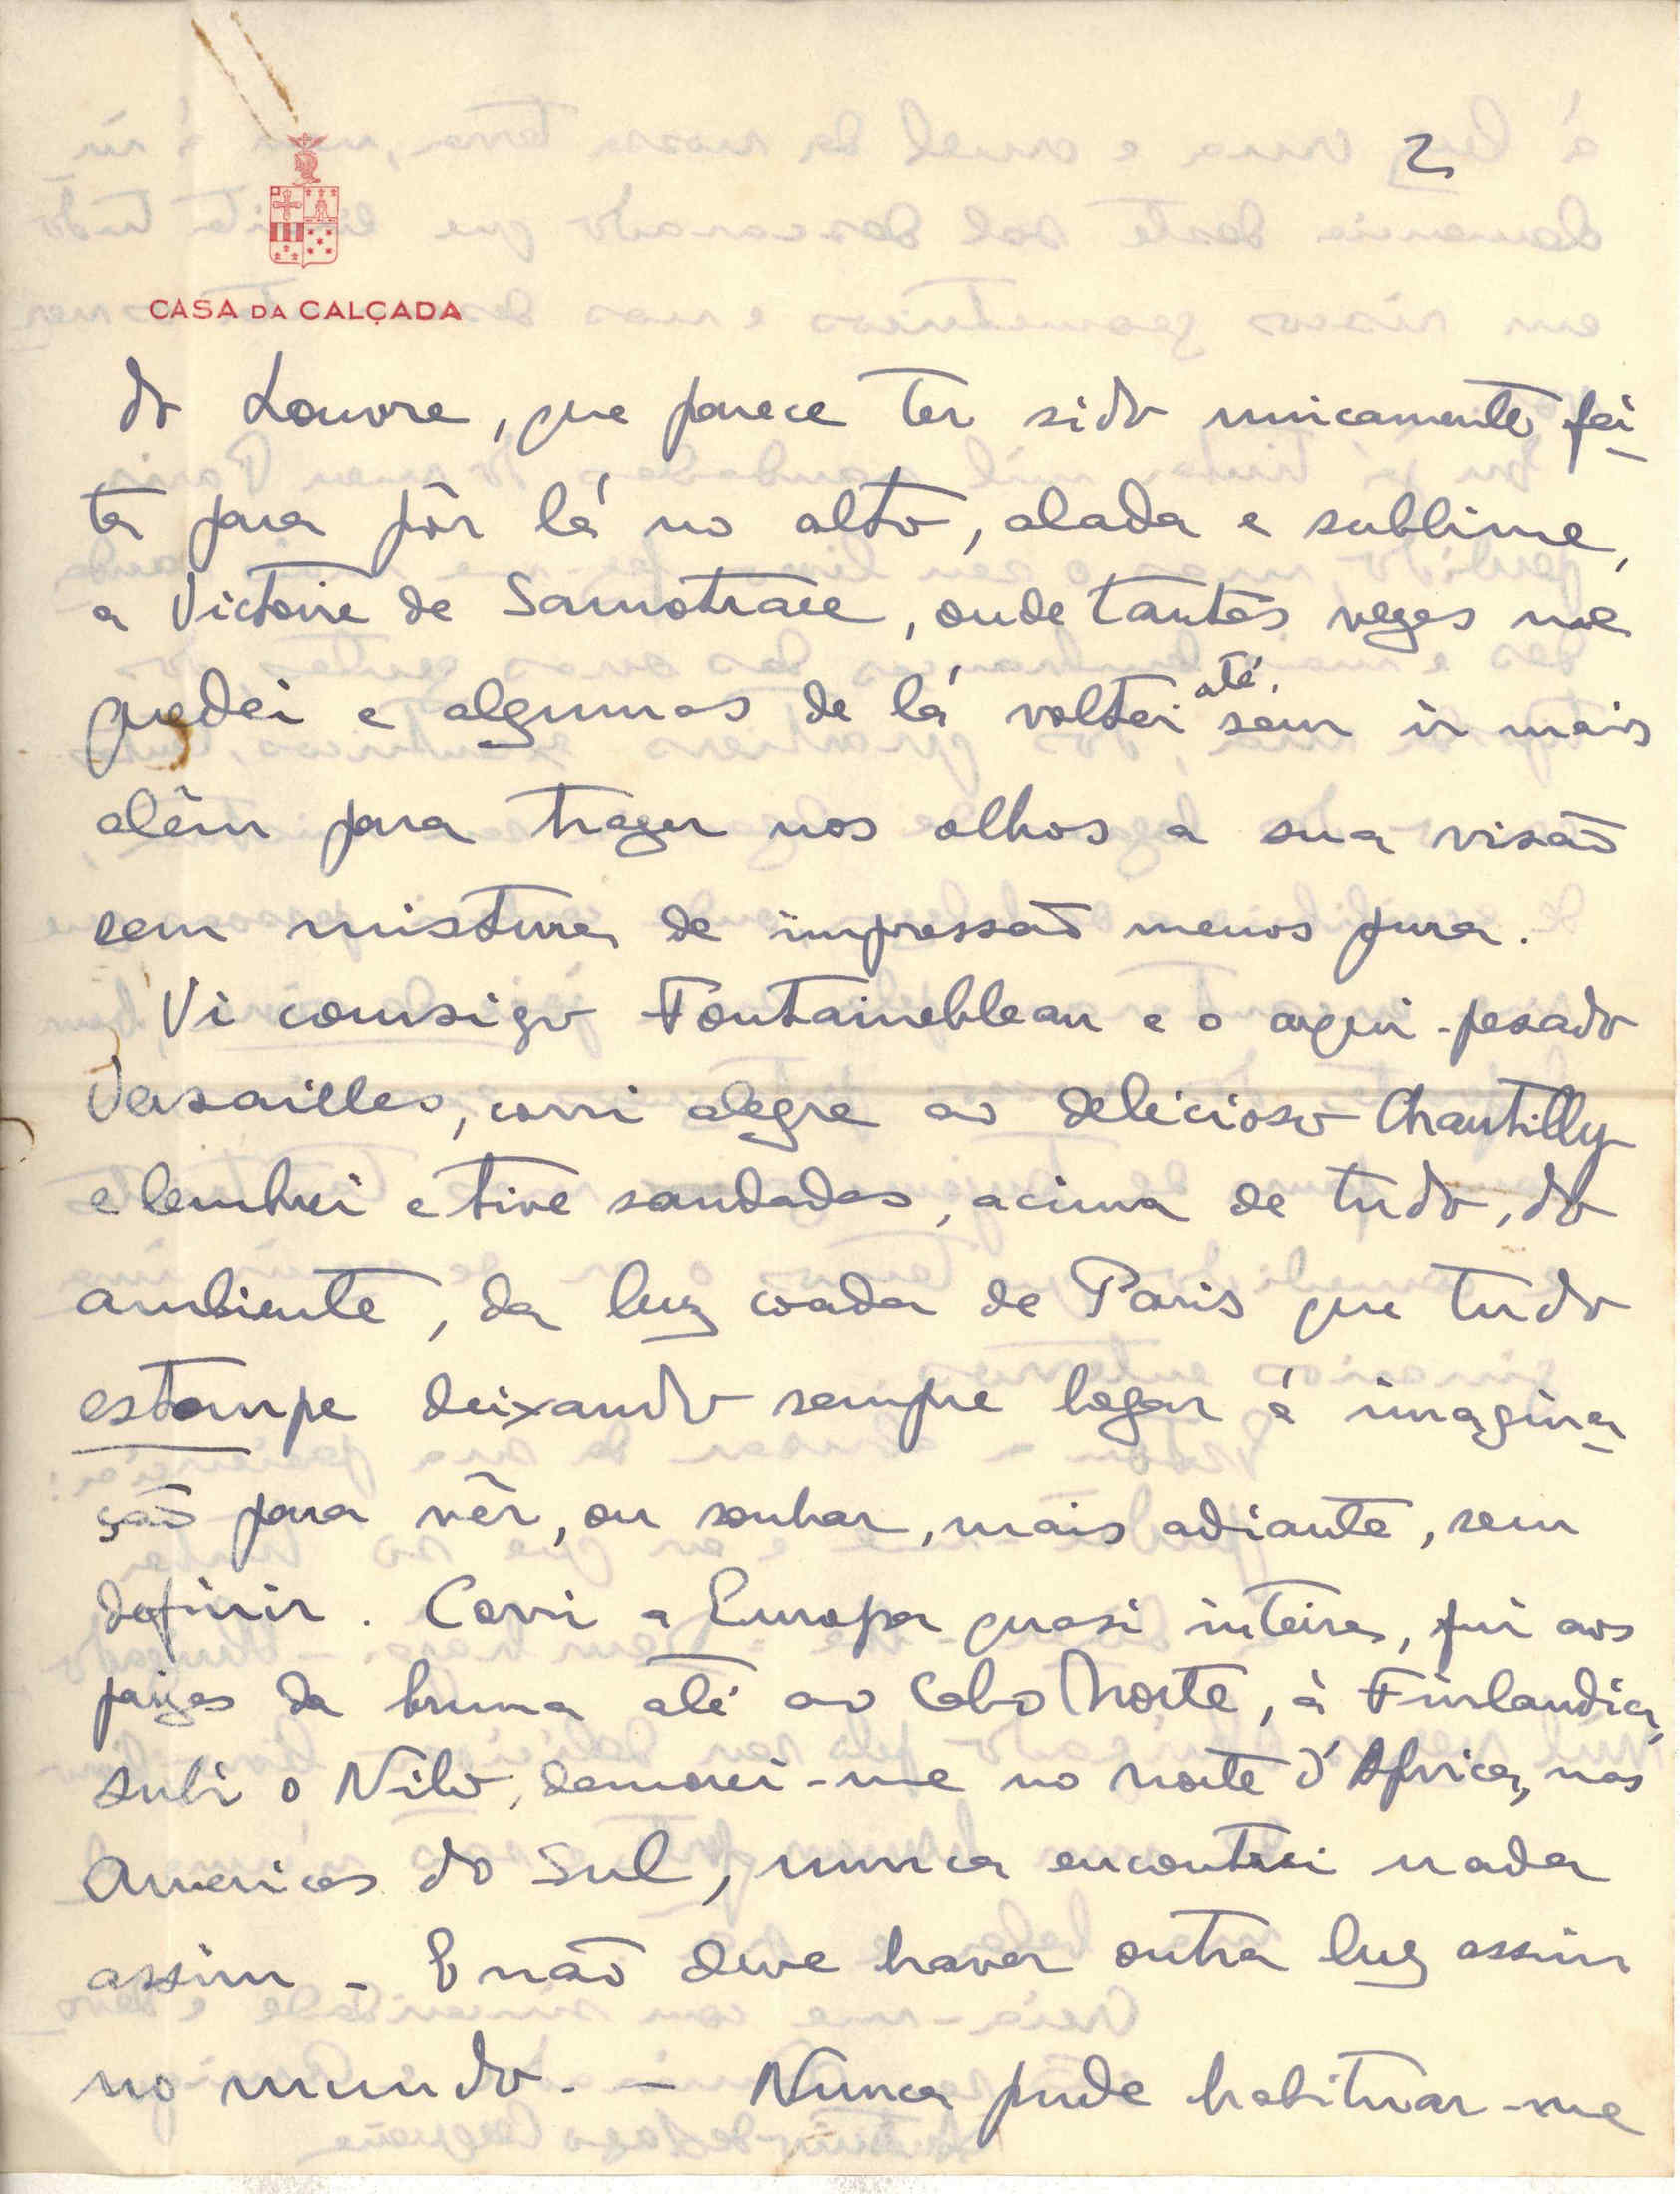 2
CASA DA CALÇADA
do Louvre, que parece ter sido unicamente fei-
ta para pôr lá no alto, alada e sublime,
a Victoire de Samotrace, onde tantas vezes me
quedei e algumas de lá voltei até sem ir mais
além para trazer nos olhos a sua visão
sem mistura de impressão menos pura.
Vi comsigo Fontainebleau e o arqui-pesado
Versailles, corri alegre ao delicioso Chantilly
e lembrei e tive saudades, acima de tudo, do
ambiente, da luz coada de Paris que tudo
estompe deixando sempre logar á imagina-
ção para vêr, ou sonhar, mais adiante, sem
definir. Corri a Europa quasi inteira, fui aos
paizes da bruma até ao Cabo Norte, à Finlandia,
subi o Nilo, demorei-me no norte d'Africa, nas
Americas do Sul, nunca encontrei nada
assim - E não deve haver outra luz assim
no mundo. - Nunca pude habituar-me